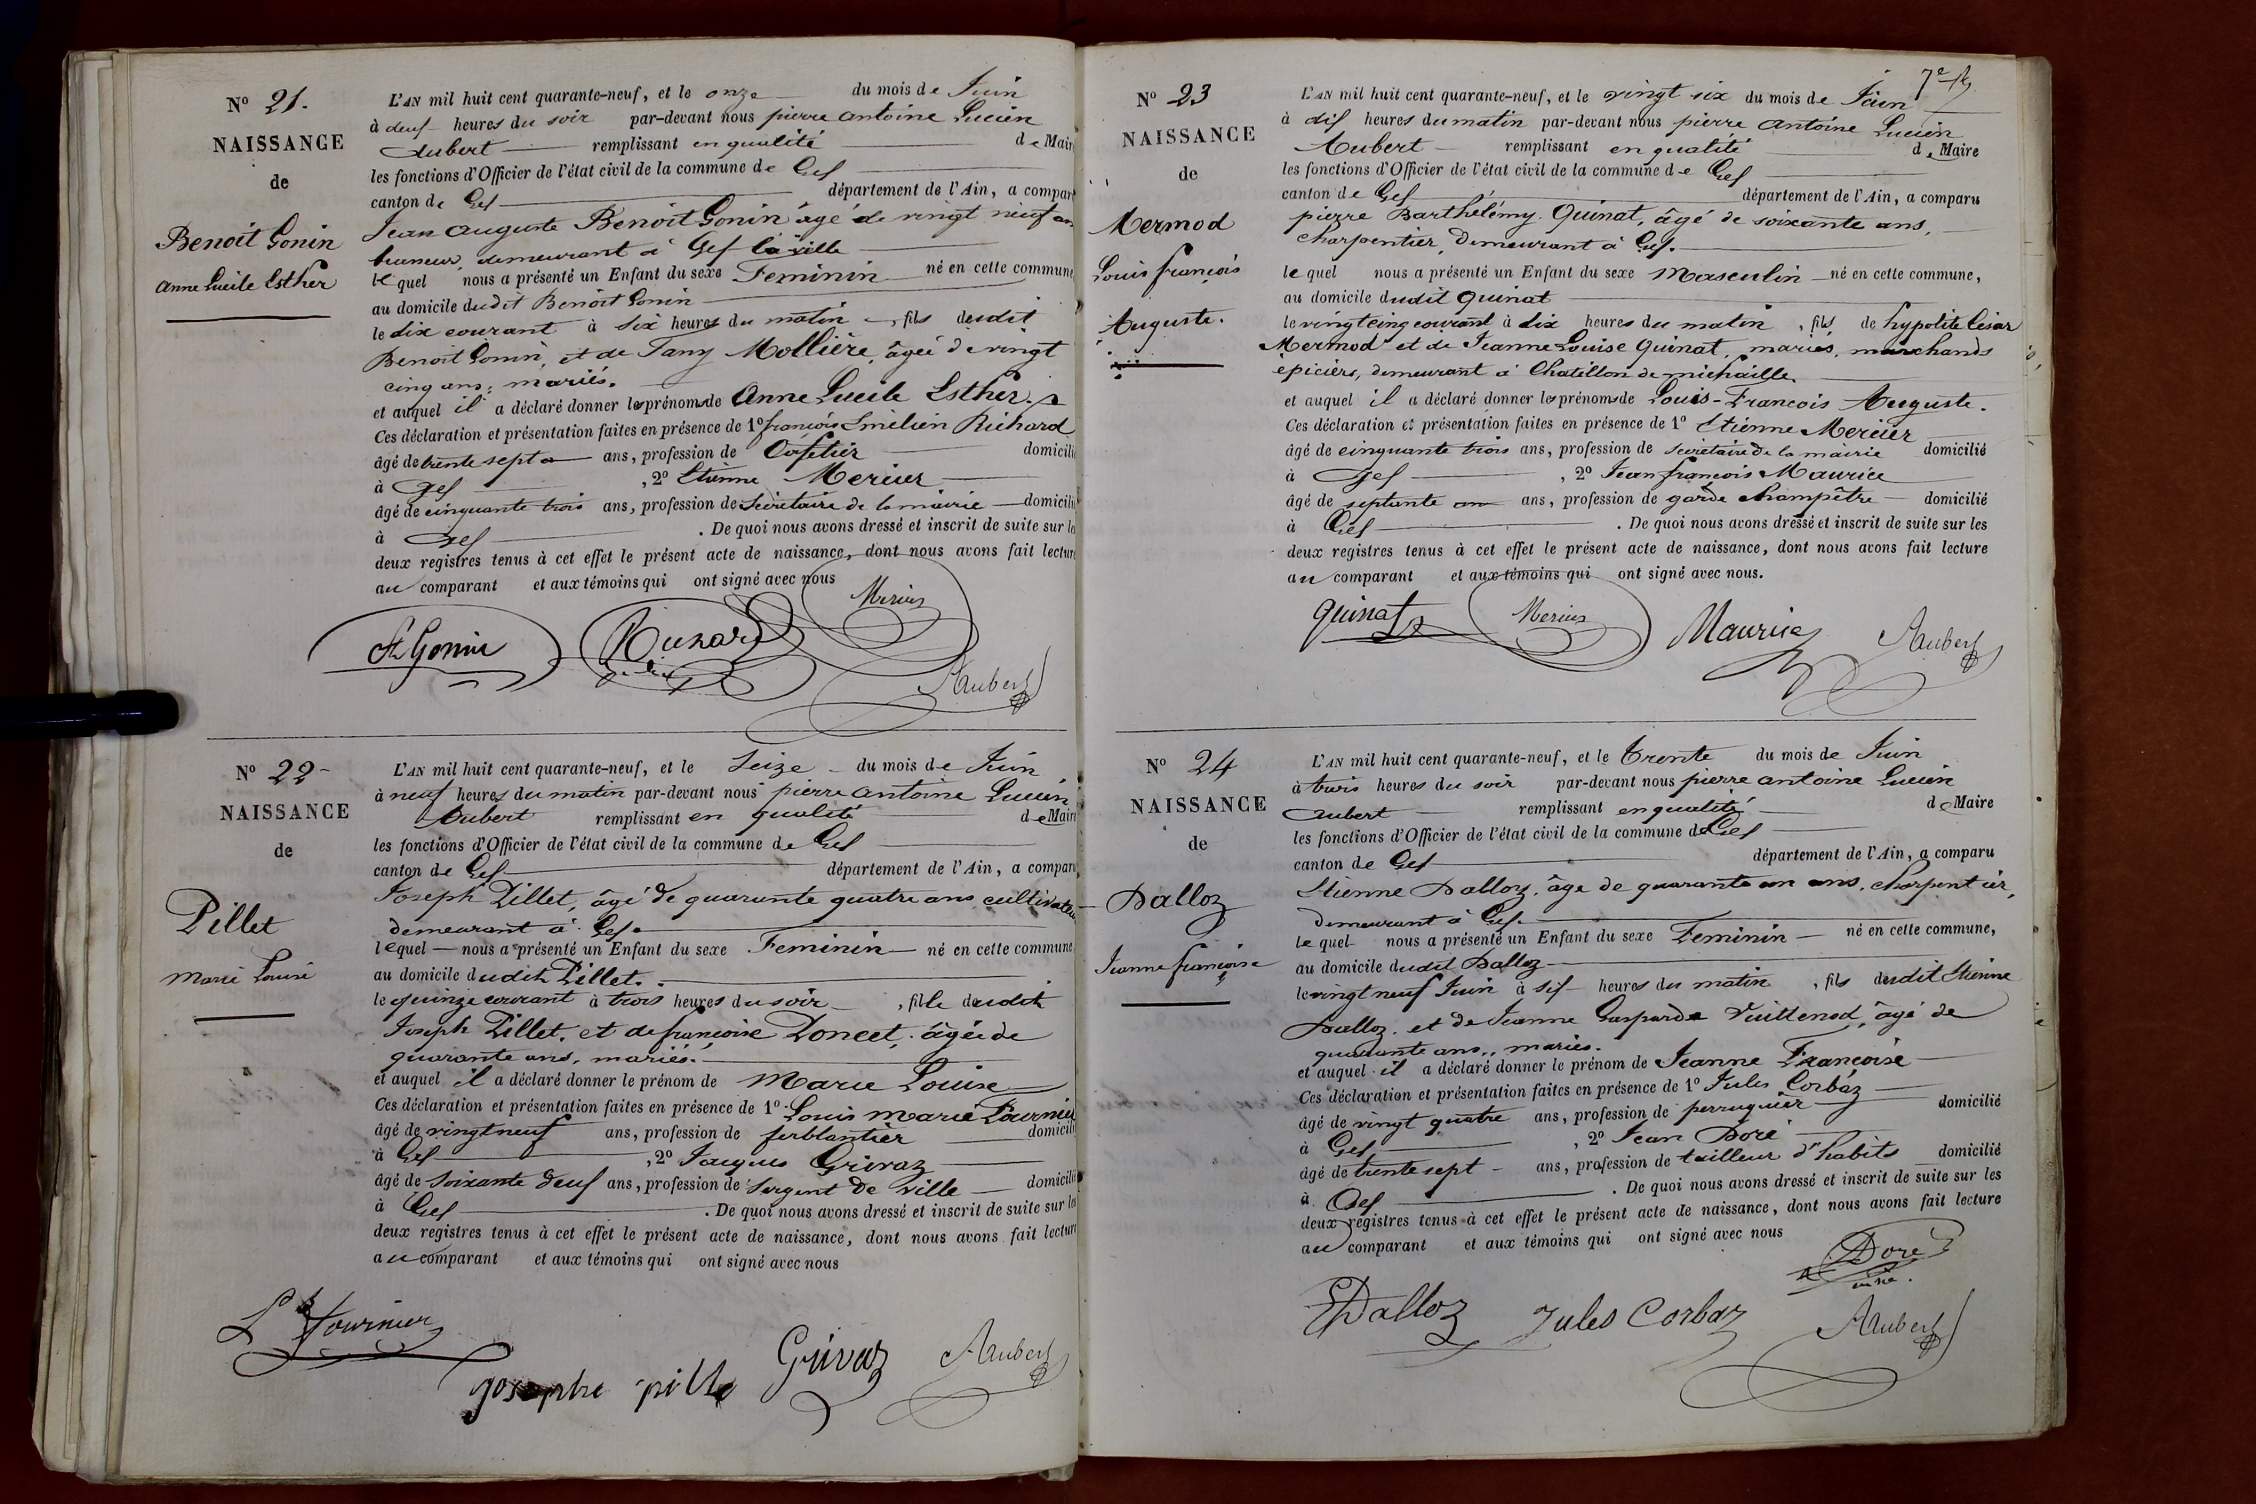 N° 21.
NAISSANCE
de
Benoit Gonin
Anne Lucile Esther
L'AN mil huit cent quarante-neuf, et le onze du mois de Juin
à deux heures du soir par-devant nous pierre antoine Lucien
Aubert remplissant en qualité de Maire
les fonctions d'Officier de l'état civil de la commune de Gex
canton de Gex département de l'Ain, a comparu
Jean Auguste Benoit Gonin âgé de vingt neuf ans
demeurant à Gex la ville
lequel nous a présenté un Enfant du sexe Feminin né en cette commune,
au domicile dudit Benoit Gonin
le dix courant à six heures du matin, fils dudit
Benoit Gonin, et de Fany Mollière, âgée de vingt
cinq ans, mariés.
et auquel il a déclaré donner les prénoms de Anne Lucile Esther.
Ces déclaration et présentation faites en présence de 1° françois Emélien Richard
âgé de trente sept ans, profession de Cafetier domicilié
à Gex, 2° Etienne Mercier
âgé de cinquante trois ans, profession de Secrétaire de la mairie domicilié
à Gex. De quoi nous avons dressé et inscrit de suite sur les
deux registres tenus à cet effet le présent acte de naissance, dont nous avons fait lecture
au comparant et aux témoins qui ont signé avec nous
Mercier
A Gonin Richard
Aubert
N° 22
NAISSANCE
de
Pillet
Marie Louise
L'AN mil huit cent quarante-neuf, et le Seize du mois de Juin
à neuf heures du matin par-devant nous pierre antoine Lucien
Aubert remplissant en qualité de Maire
les fonctions d'Officier de l'état civil de la commune de Gex
canton de Gex département de l'Ain, a comparu
Joseph Pillet, âgé de quarante quatre ans cultivateur
demeurant à Gex
lequel nous a présenté un Enfant du sexe Feminin né en cette commune
au domicile dudit Pillet.
le quinze courant à trois heures du soir, fille dudit
Joseph Pillet, et de françoise Poncet, âgée de
quarante ans, mariés.
et auquel il a déclaré donner le prénom de Marie Louise
Ces déclaration et présentation faites en présence de 1° Louis marie Fournier
âgé de vingt neuf ans, profession de ferblantier domicilié
à Gex, 2° Jacques Grivaz
âgé de soixante deux ans, profession de Sergent de ville domicilié
à Gex. De quoi nous avons dressé et inscrit de suite sur les
deux registres tenus à cet effet le présent acte de naissance, dont nous avons fait lecture
au comparant et aux témoins qui ont signé avec nous
L Fournier
josephe pille Grivaz Aubert
7e
N° 23
NAISSANCE
de
Mermod
Louis françois
Auguste.
L'AN mil huit cent quarante-neuf, et le vingt six du mois de Juin
à dix heures du matin par-devant nous pierre antoine Lucien
Aubert remplissant en qualité de Maire
les fonctions d'Officier de l'état civil de la commune de Gex
canton de Gex département de l'Ain, a comparu
pierre Barthélémy Quinat, âgé de soixante ans,
charpentier, demeurant à Gex.
lequel nous a présenté un Enfant du sexe Masculin né en cette commune,
au domicile dudit Quinat
le vingt cinq courant à dix heures du matin, fils de hypolite César
Mermod et de Jeanne Louise Quinat, mariés, marchands
épiciers, demeurant à Chatillon de michaille.
et auquel il a déclaré donner les prénoms de Louis-François Auguste.
Ces déclaration et présentation faites en présence de 1° Etienne Mercier
âgé de cinquante trois ans, profession de Secrétaire de la mairie domicilié
à Gex, 2° Jean françois Maurice
âgé de septante un ans, profession de garde champêtre domicilié
à Gex. De quoi nous avons dressé et inscrit de suite sur les
deux registres tenus à cet effet le présent acte de naissance, dont nous avons fait lecture
au comparant et aux témoins qui ont signé avec nous.
Quinat Mercier Maurice Aubert
N° 24
NAISSANCE
de
Dalloz
Jeanne françoise
L'AN mil huit cent quarante-neuf, et le trente du mois de Juin
à trois heures du soir par-devant nous pierre antoine Lucien
Aubert remplissant en qualité de Maire
les fonctions d'Officier de l'état civil de la commune de Gex
canton de Gex département de l'Ain, a comparu
Etienne Dalloz, âgé de quarante un ans, charpentier,
demeurant à Gex.
lequel nous a présenté un Enfant du sexe Feminin né en cette commune,
au domicile dudit Dalloz
le vingt neuf Juin à six heures du matin, fils dudit Etienne
Dalloz, et de Jeanne Gasparde Vuillenod, âgé de
quarante ans, mariés.
et auquel il a déclaré donner le prénom de Jeanne Françoise
Ces déclaration et présentation faites en présence de 1° Jules Corbaz
âgé de vingt quatre ans, profession de perruquier domicilié
à Gex, 2° Jean Doré
âgé de trente sept ans, profession de tailleur d'habits domicilié
à Gex. De quoi nous avons dressé et inscrit de suite sur les
deux registres tenus à cet effet le présent acte de naissance, dont nous avons fait lecture
au comparant et aux témoins qui ont signé avec nous
Doré
ainé.
E Dalloz Jules Corbaz Aubert